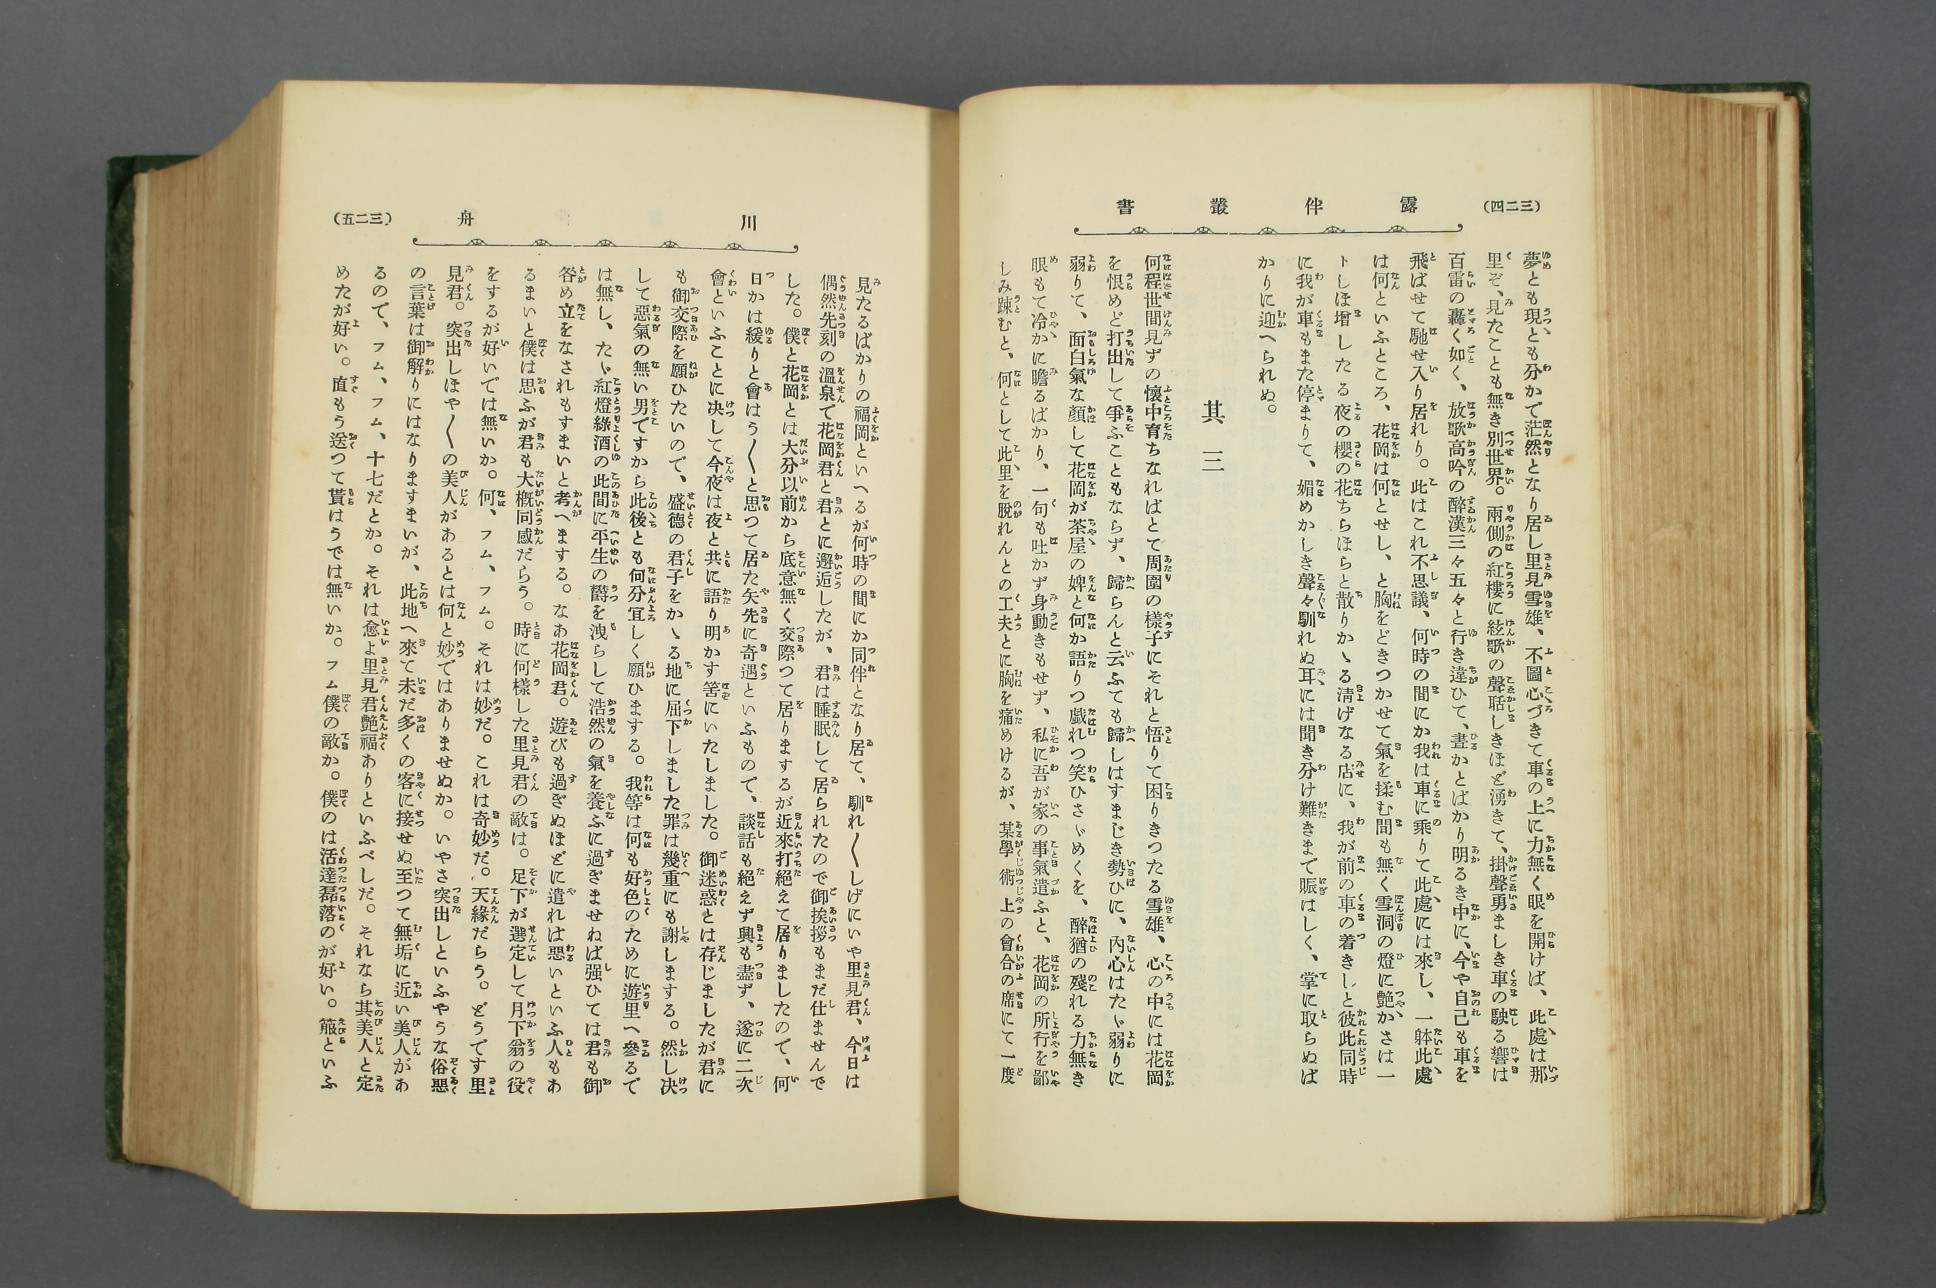 (三二四)
露伴叢書
夢とも現とも分かで茫然となり居し里見雪雄、不圖心づきて車の上に力無く眼を開けば、此處は那
里ぞ、見たことも無き別世界。兩側の紅樓に絃歌の聲聒しきほど湧きて、掛聲勇ましき車の駛る響は
百雷の轟く如く、放歌高吟の醉漢三々五々と行き違ひて、晝かとばかり明るき中に、今や自己も車を
飛ばせて馳せ入り居れり。此はこれ不思議、何時の間にか我は車に乘りて此處には來し、一躰此處
は何といふところ、花岡は何とせし、と胸をどきつかせて氣を揉む間も無く雪洞の燈に艶かさは一
トしほ增したる夜の櫻の花ちらほらと散りかゝる淸げなる店に、我が前の車の着きしと彼此同時
に我が車もまた停まりて、媚めかしき聲々馴れぬ耳には聞き分け難きまで賑はしく、掌に取らぬば
かりに迎へられぬ。
其三
何程世間見ずの懷中育ちなればとて周圍の樣子にそれと悟りて困りきつたる雪雄、心の中には花岡
を恨めど打出して爭ふこともならず、歸らんと云ふても歸しはすまじき勢ひに、內心はたゞ弱りに
弱りて、面白氣な顏して花岡が茶屋の婢と何か語りつ戯れつ笑ひさゞめくを、醉猶の殘れる力無き
眼もて冷かに瞻るばかり、一句も吐かず身動きもせず、私に吾が家の事氣遣ふと、花岡の所行を鄙
しみ疎むと、何として此里を脫れんとの工夫とに胸を痛めけるが、某學術上の會合の席にて一度
川舟
(三二五)
見たるばかりの福岡といへるが何時の間にか同伴となり居て、馴れ〳〵しげにいや里見君、今日は
偶然先刻の溫泉で花岡君と君とに邂逅したが、君は睡眠して居られたので御挨拶もまだ仕ませんで
した。僕と花岡とは大分以前から底意無く交際つて居りまするが近來打絕えて居りましたので、何
日かは緩りと會はう〳〵と思つて居た矢先に奇遇といふもので、談話も絕えず興も盡ず、遂に二次
會といふことに决して今夜は夜と共に語り明かす筈にいたしました。御迷惑とは存じましたが君に
も御交際を願ひたいので、盛德の君子をかゝる地に屈下しました罪は幾重にも謝しまする。然し决
して惡氣の無い男ですから此後とも何分宜しく願ひまする。我等は何も好色のために遊里へ參るで
は無し、たゞ紅燈綠酒の此間に平生の欝を洩らして浩然の氣を養ふに過ぎませねば强ひては君も御
咎め立をなされもすまいと考へまする。なあ花岡君。遊びも過ぎぬほどに遣れは惡いといふ人もあ
るまいと僕は思ふが君も大槪同感だらう。時に何樣した里見君の敵は。足下が選定して月下翁の役
をするが好いでは無いか。何、フム、フム。それは妙だ。これは奇妙だ。天緣だらう。どうです里
見君。突出しほや〳〵の美人があるとは何と妙ではありませぬか。いやさ突出しといふやうな俗惡
の言葉は御解りにはなりますまいが、此地へ來て未だ多くの客に接せぬ至つて無垢に近い美人があ
るので、フム、フム、十七だとか。それは愈よ里見君艶福ありといふべしだ。それなら其美人と定
めたが好い。直もう送つて貰はうでは無いか。フム僕の敵か。僕のは活達磊落のが好い。箙といふ